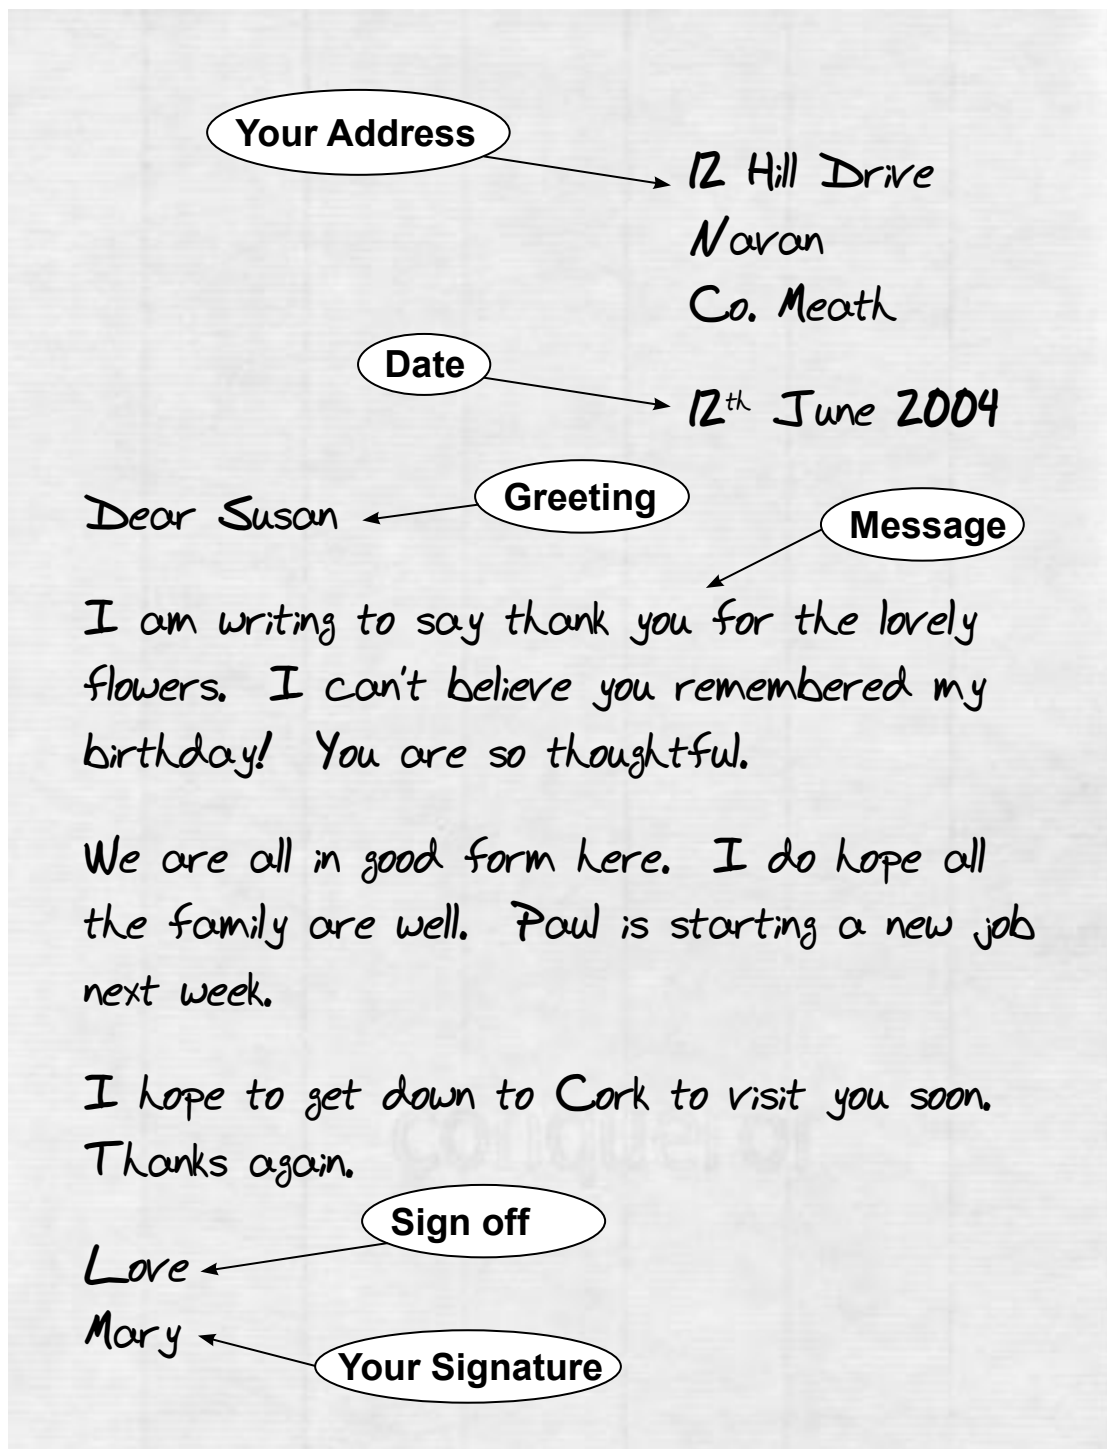 Your Address
12 Hill Drive
Navan
Co. Meath
Date
12th June 2004
Dear Susan
Greeting
Message
I am writing to say thank you for the lovely
flowers. I can't believe you remembered my
birthday! You are so thoughtful.
We are all in good form here. I do hope all
the family are well. Paul is starting a new job
next week.
I hope to get down to Cork to visit you soon.
conqueror
Thanks again.
Sign off
Love
Mary
Your Signature